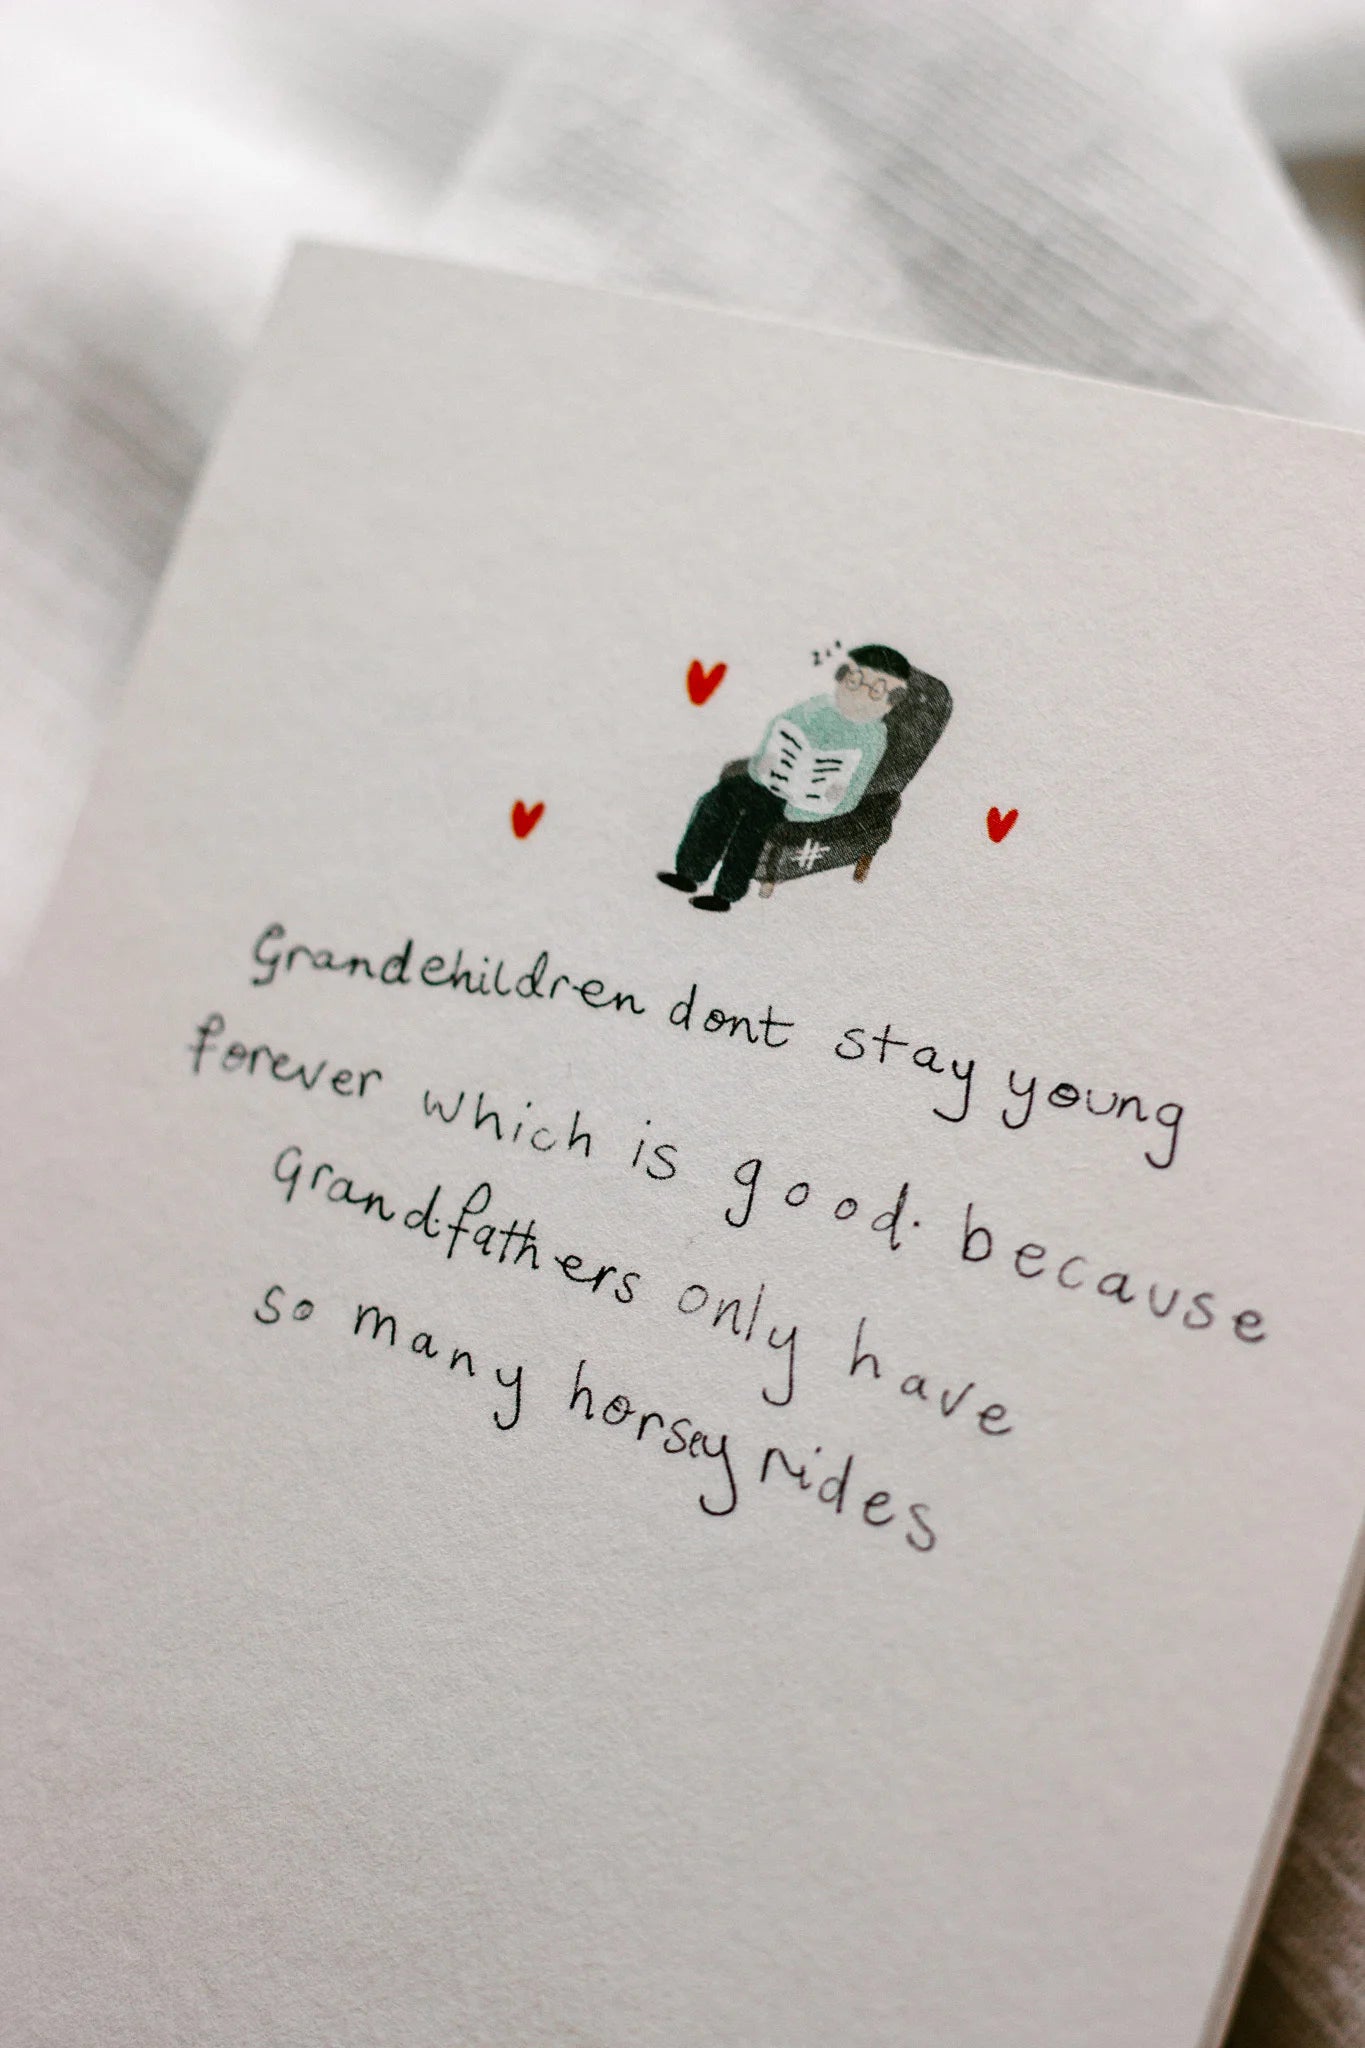 zzz
#
Grandchildren dont stay young
forever which is good. because
Grandfathers only have
so many horsey rides